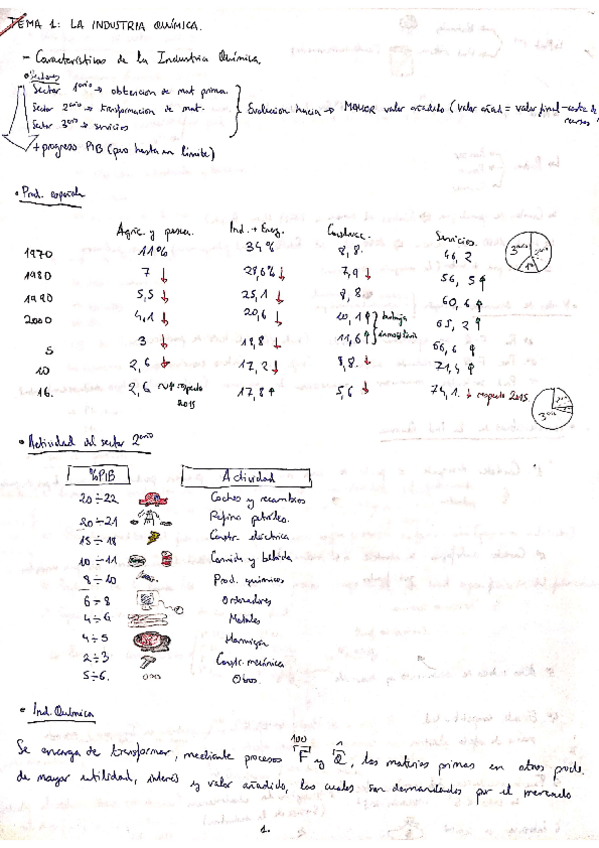 TEMA 1: LA INDUSTRIA QUÍMICA.
- Características de la Industria Química.
• Sectores
Sector 1ario → obtencion de mat prima
Sector 2ario → transformacion de mat.
Sector 3ario → servicios
Evolucion hacia → MAYOR valor añadido (valor añad = valor final - coste de
+ progreso PIB (pero hasta un límite)
• Prod. española
Agric. y pesca. Ind. + Energ. Construcc. Servicios.
1970 11% 34% 8,8. 46,2
1980 7 ↓ 28,6% ↓ 7,9 ↓ 56,5 ↑
1990 5,5 ↓ 25,1 ↓ 8,8 60,6 ↑
2000 4,1 ↓ 20,6 ↓ 10,1 ↑ 65,2 ↑
5 3 ↓ 18,8 ↓ 11,6 ↑ 66,6 ↑
burbuja
inmobiliaria
10 2,6 ↓ 17,2 ↓ 8,8. ↓ 71,4 ↑
16. 2,6 ~ ↑ respecto 2015 17,8 ↑ 5,6 ↓ 74,1. ↓ respecto 2015.
3ario 2ario 1ario
3ario
• Actividad del sector 2ario
%PIB Actividad
20÷22 Coches y recambios
20÷21 Refino petróleo.
15÷18 Constr. eléctrica
10÷11 Comida y bebida
8÷10 Prod. químicos
6÷8 Ordenadores
4÷6 Metales
4÷5 Hormigón
2÷3 Constr. mecánica
5÷6. Otros.
• Ind. Química
Se encarga de transformar, mediante procesos F y Q, las materias primas en otros prods.
de mayor utilidad, interés y valor añadido, los cuales son demandados por el mercado
1.